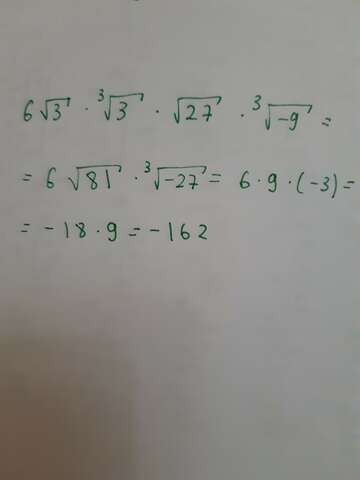 6√3 · ³√3 · √27 · ³√-9 =
= 6 √81 · ³√-27 = 6 · 9 · (-3) =
= -18 · 9 = -162